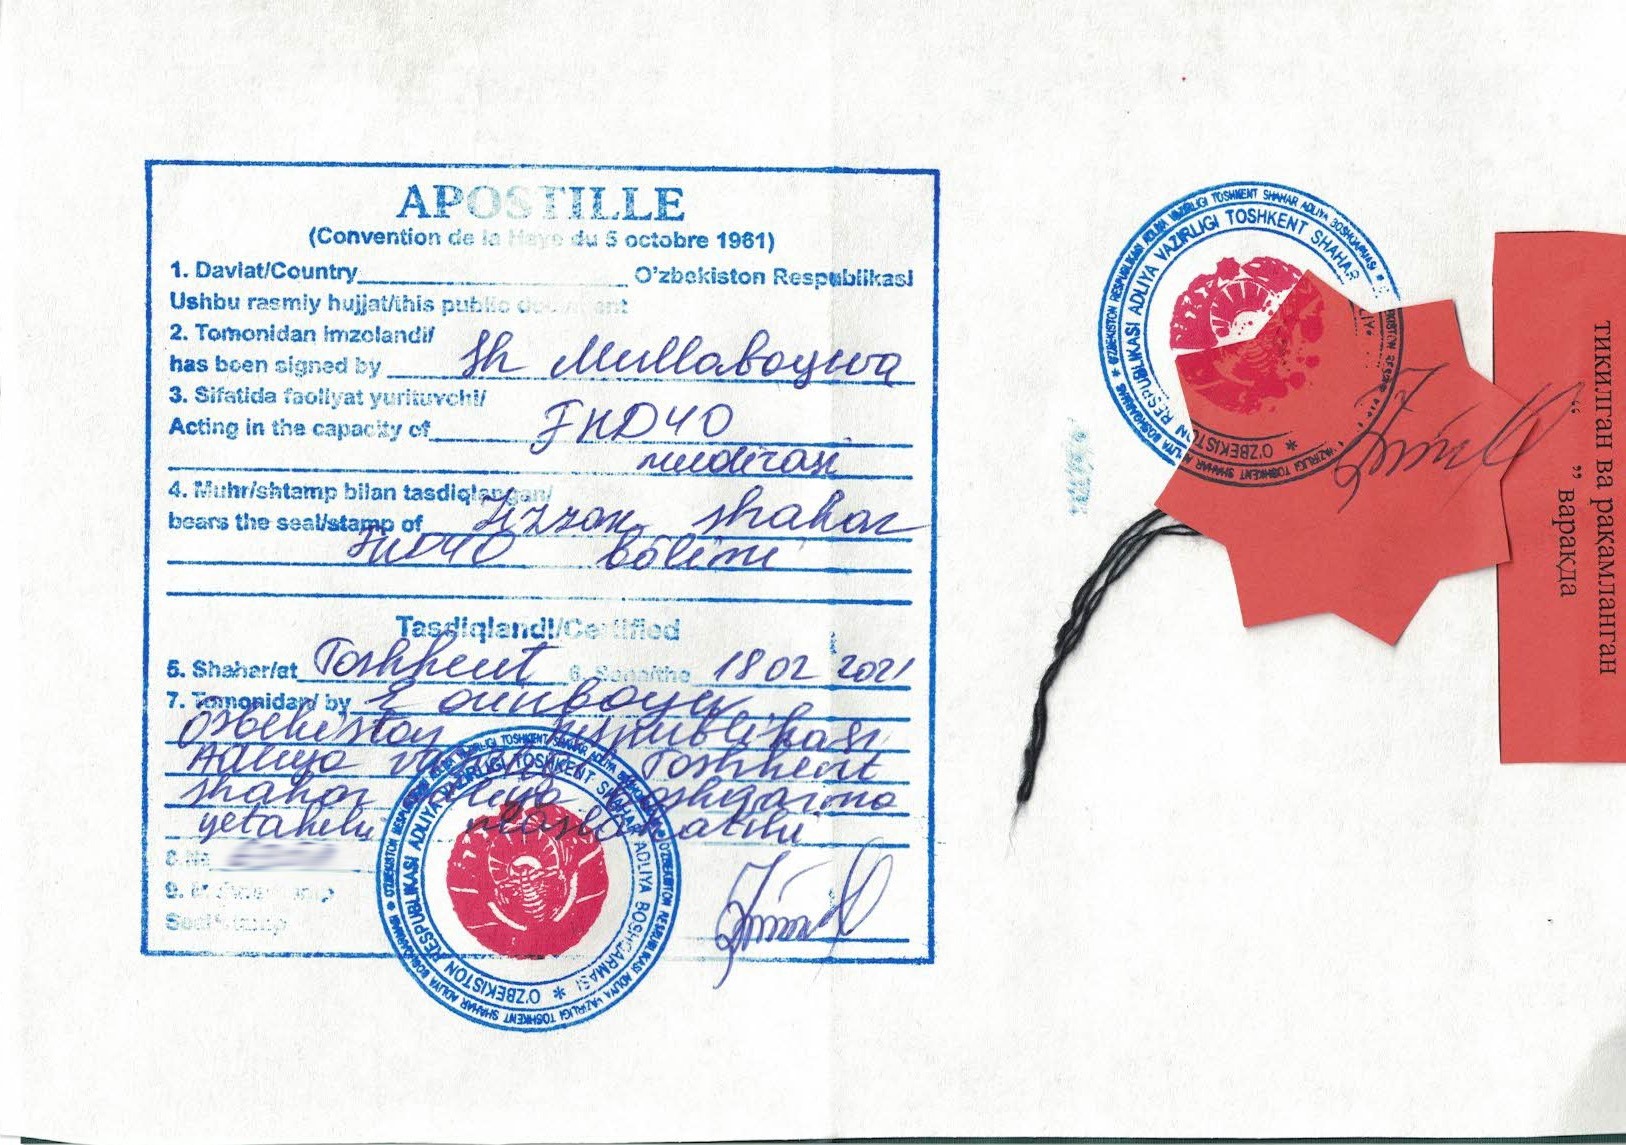 APOSTILLE
(Convention de la Haye du 5 octobre 1961)
1. Davlat/Country O'zbekiston Respublikasi
Ushbu rasmiy hujjat/this public document
2. Tomonidan imzolandi/
has been signed by Sh Mullaboyeva
3. Sifatida faoliyat yurituvchi/
Acting in the capacity of FHDYO
mudirasi
4. Muhr/shtamp bilan tasdiqlangan/
bears the seal/stamp of Jizzax shahar
FHDYO bo'limi
Tasdiqlandi/Certified
5. Shahar/at Toshkent 6. Sana/the 18 02 2021
7. Tomonidan/ by
O'zbekiston Respublikasi
Adliya vazirligi Toshkent
shahar adliya boshqarma
yetakchi maslahatchi
8 №
9.
Seal/stamp
O'ZBEKISTON RESPUBLIKASI ADLIYA VAZIRLIGI TOSHKENT SHAHAR ADLIYA BOSHQARMASI *
O'ZBEKISTON RESPUBLIKASI ADLIYA VAZIRLIGI TOSHKENT SHAHAR
ТИКИЛГАН ВА РАҚАМЛАНГАН
“ ” ВАРАҚДА